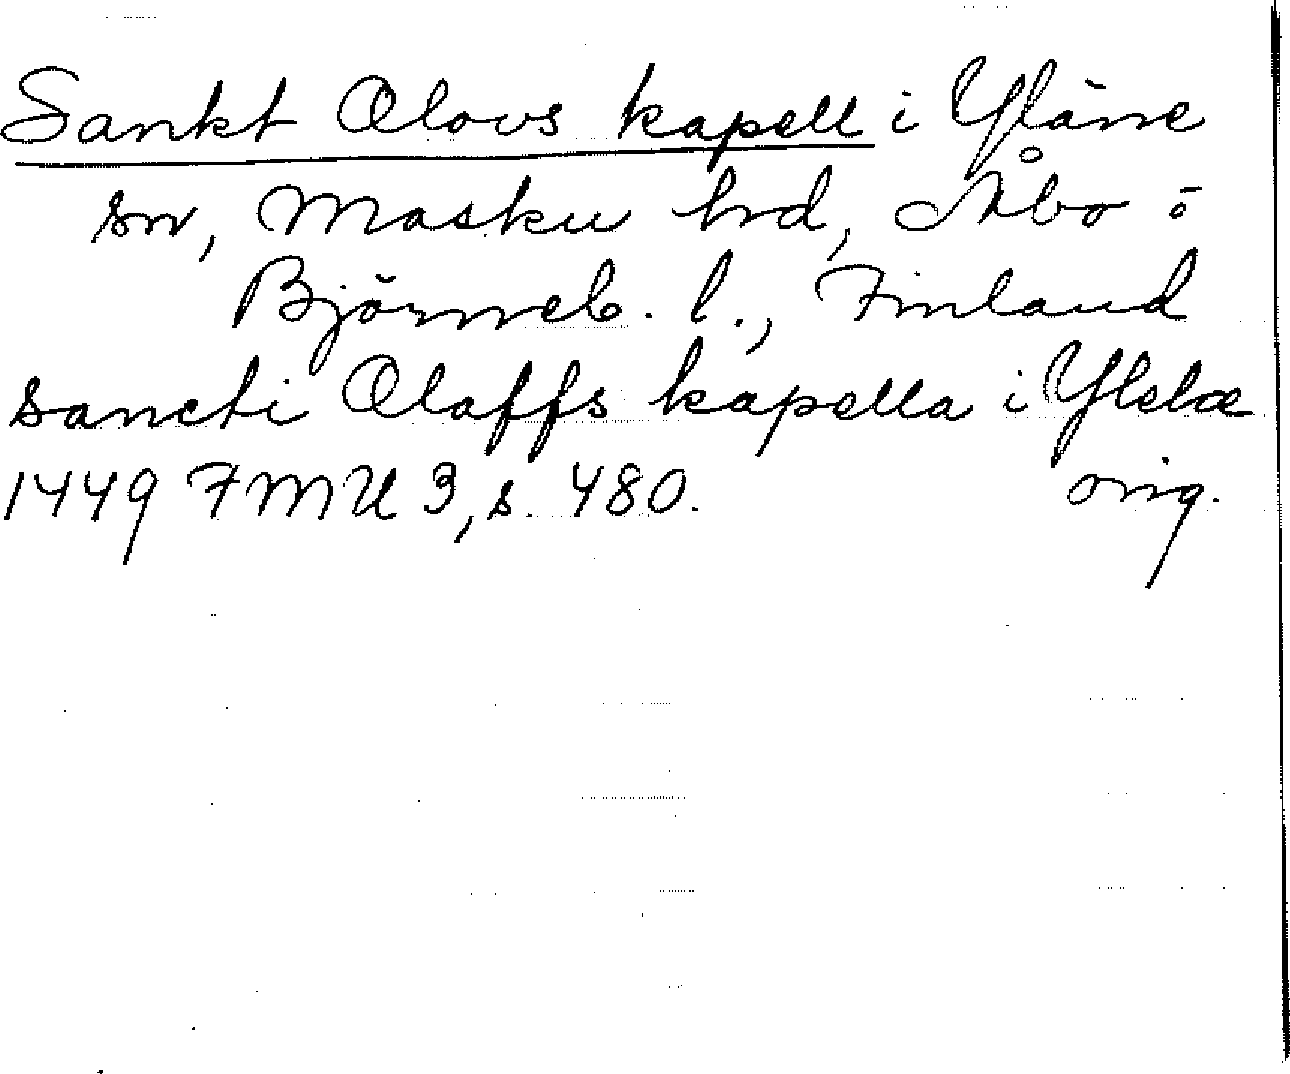 Sankt Olovs kapell i Yläne
sn, Masku hrd, Åbo o
Björneb. l., Finland
sancti Olaffs kapella i Ylelæ
1449 FMU 3, s. 480. orig.